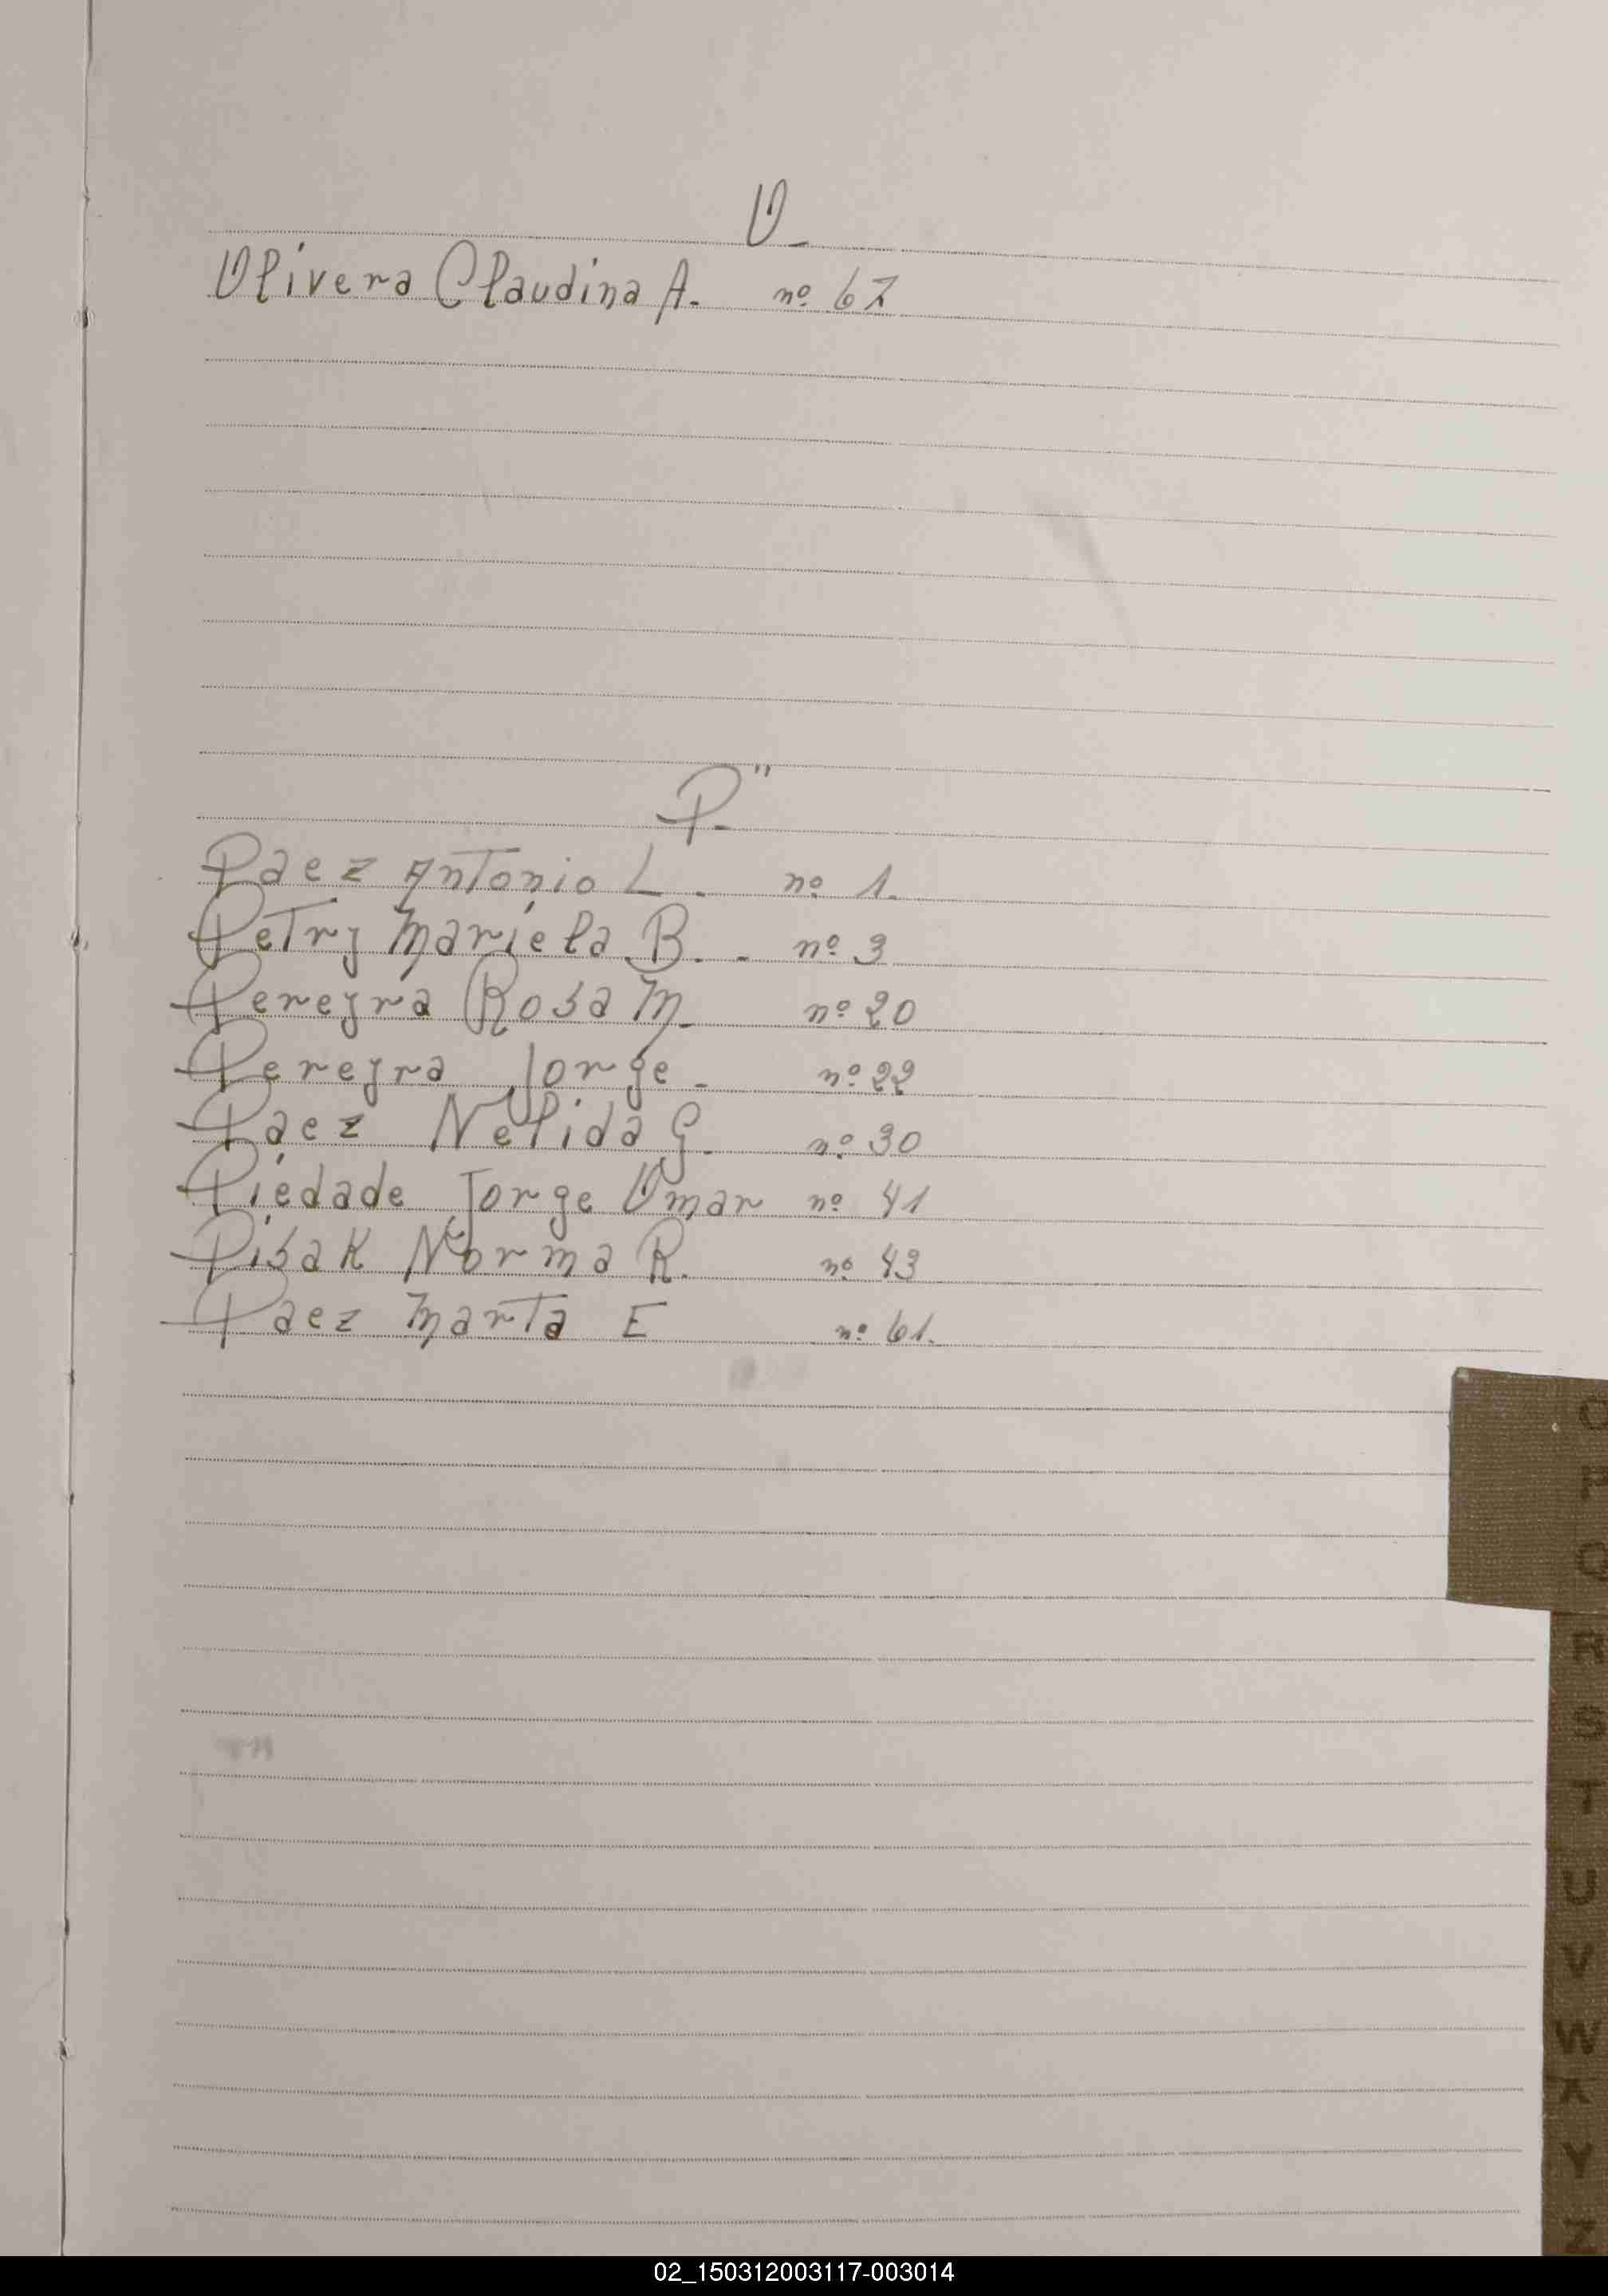 O-
Olivera Claudina A. nº 67
P."
Paez Antonio L. nº 1.
Petry Mariela B. - nº 3
Pereyra Rosa M. nº 20
Pereyra Jorge - nº 22
Paez Nelida G. nº 30
Piedade Jorge Omar nº 41
Pisak Norma R. nº 43
Paez Marta E nº 61.
O
P
Q
R
S
T
U
V
W
X
Y
Z
02_150312003117-003014